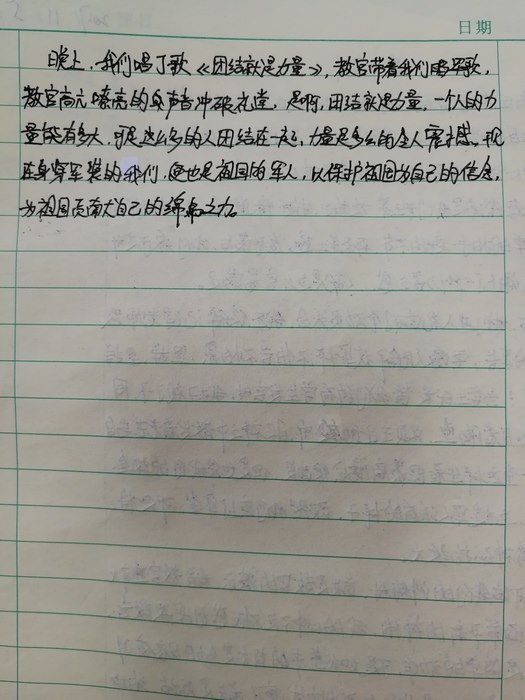 日期
晚上，我们唱了歌《团结就是力量》，教官带着我们唱军歌，
教官高亢嘹亮的嗓声音冲破礼堂，是啊，团结就是力量，一个人的力
量能有多大，可是这么多的人团结在一起，力量是多么的令人震撼。现
在身穿军装的我们，便也是祖国的军人，以保护祖国为自己的信念，
为祖国贡献自己的绵帛之力。